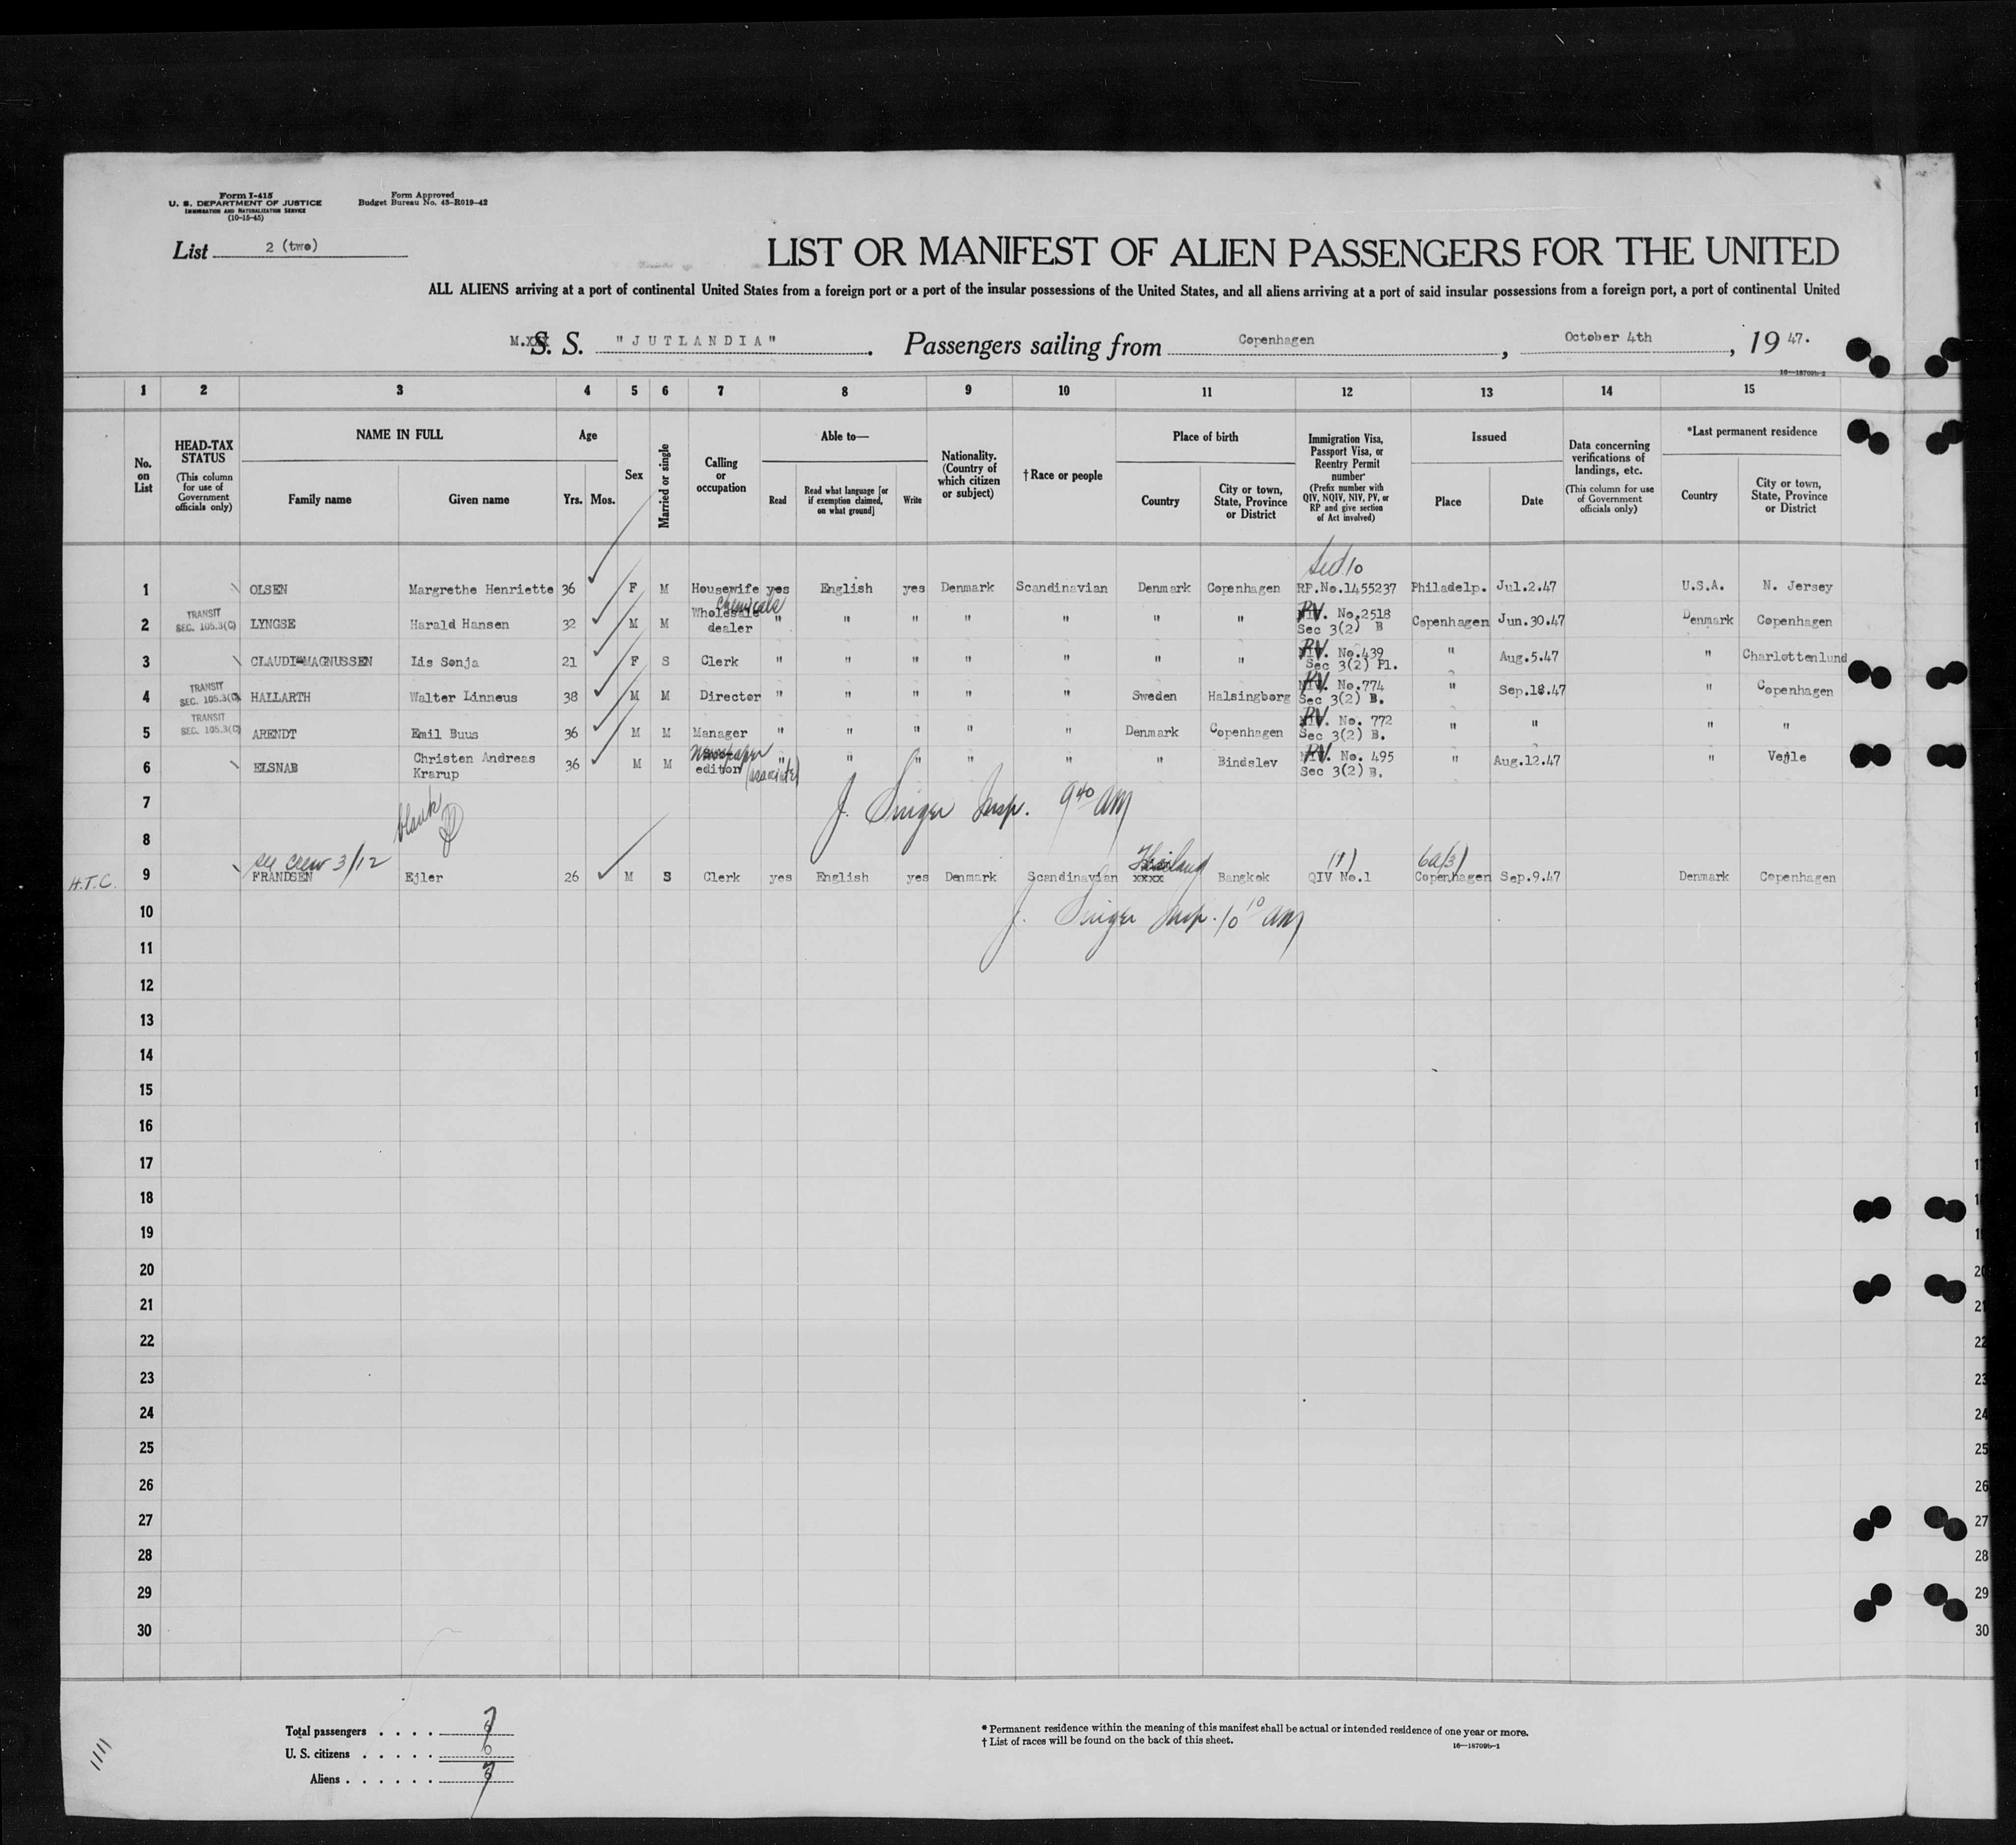 Form I-415
U. S. DEPARTMENT OF JUSTICE
IMMIGRATION AND NATURALIZATION SERVICE
(10-15-45)
Form Approved
Budget Bureau No. 43-R019-42
List 2 (two)
LIST OR MANIFEST OF ALIEN PASSENGERS FOR THE UNITED
ALL ALIENS arriving at a port of continental United States from a foreign port or a port of the insular possessions of the United States, and all aliens arriving at a port of said insular possessions from a foreign port, a port of continental United
M.xxx S. S. "JUTLANDIA". Passengers sailing from Copenhagen, October 4th, 19 47.
16—18709b-2
1 2 3 4 5 6 7 8 9 10 11 12 13 14 15
No. on List
HEAD-TAX STATUS (This column for use of Government officials only)
NAME IN FULL
Family name
Given name
Age
Yrs. Mos.
Sex
Married or single
Calling or occupation
Able to—
Read
Read what language [or if exemption claimed, on what ground]
Write
Nationality. (Country of which citizen or subject)
† Race or people
Place of birth
Country
City or town, State, Province or District
Immigration Visa, Passport Visa, or Reentry Permit number (Prefix number with QIV, NQIV, NIV, PV, or RP and give section of Act involved)
Issued
Place
Date
Data concerning verifications of landings, etc. (This column for use of Government officials only)
*Last permanent residence
Country
City or town, State, Province or District
Sec 10
1 OLSEN Margrethe Henriette 36 F M Housewife yes English yes Denmark Scandinavian Denmark Copenhagen RP.No.1455237 Philadelp. Jul.2.47 U.S.A. N. Jersey
chemicals
2 TRANSIT SEC. 105.3(C) LYNGSE Harald Hansen 32 M M Wholesale dealer " " " " " " " PV. No.2518 Sec 3(2) B Copenhagen Jun.30.47 Denmark Copenhagen
3 CLAUDI-MAGNUSSEN Lis Sonja 21 F S Clerk " " " " " " " PV. No.439 Sec 3(2) Pl. " Aug.5.47 " Charlottenlund
4 TRANSIT SEC. 105.3(C) HALLARTH Walter Linneus 38 M M Director " " " " " Sweden Halsingborg PV. No.774 Sec 3(2) B. " Sep.18.47 " Copenhagen
5 TRANSIT SEC. 105.3(C) ARENDT Emil Buus 36 M M Manager " " " " " Denmark Copenhagen PV. No. 772 Sec 3(2) B. " " " "
6 ELSNAB Christen Andreas Krarup 36 M M Newspaper editor (associate) " " " " " " Bindslev PV. No. 495 Sec 3(2) B. " Aug.12.47 " Vejle
7 J. Singer Insp. 9 40 AM
blank
8
see crew 3/12
H.T.C. 9 FRANDSEN Ejler 26 M S Clerk yes English yes Denmark Scandinavian Thailand xxxx Bangkok (1) QIV No.1 6a(3) Copenhagen Sep.9.47 Denmark Copenhagen
10 J. Singer Insp. 10 10 AM
11
12
13
14
15
16
17
18
19
20
21
22
23
24
25
26
27
28
29
30
Total passengers . . . . 7
U. S. citizens . . . . . 0
Aliens . . . . . . 7
* Permanent residence within the meaning of this manifest shall be actual or intended residence of one year or more.
† List of races will be found on the back of this sheet.
16—18709b-1